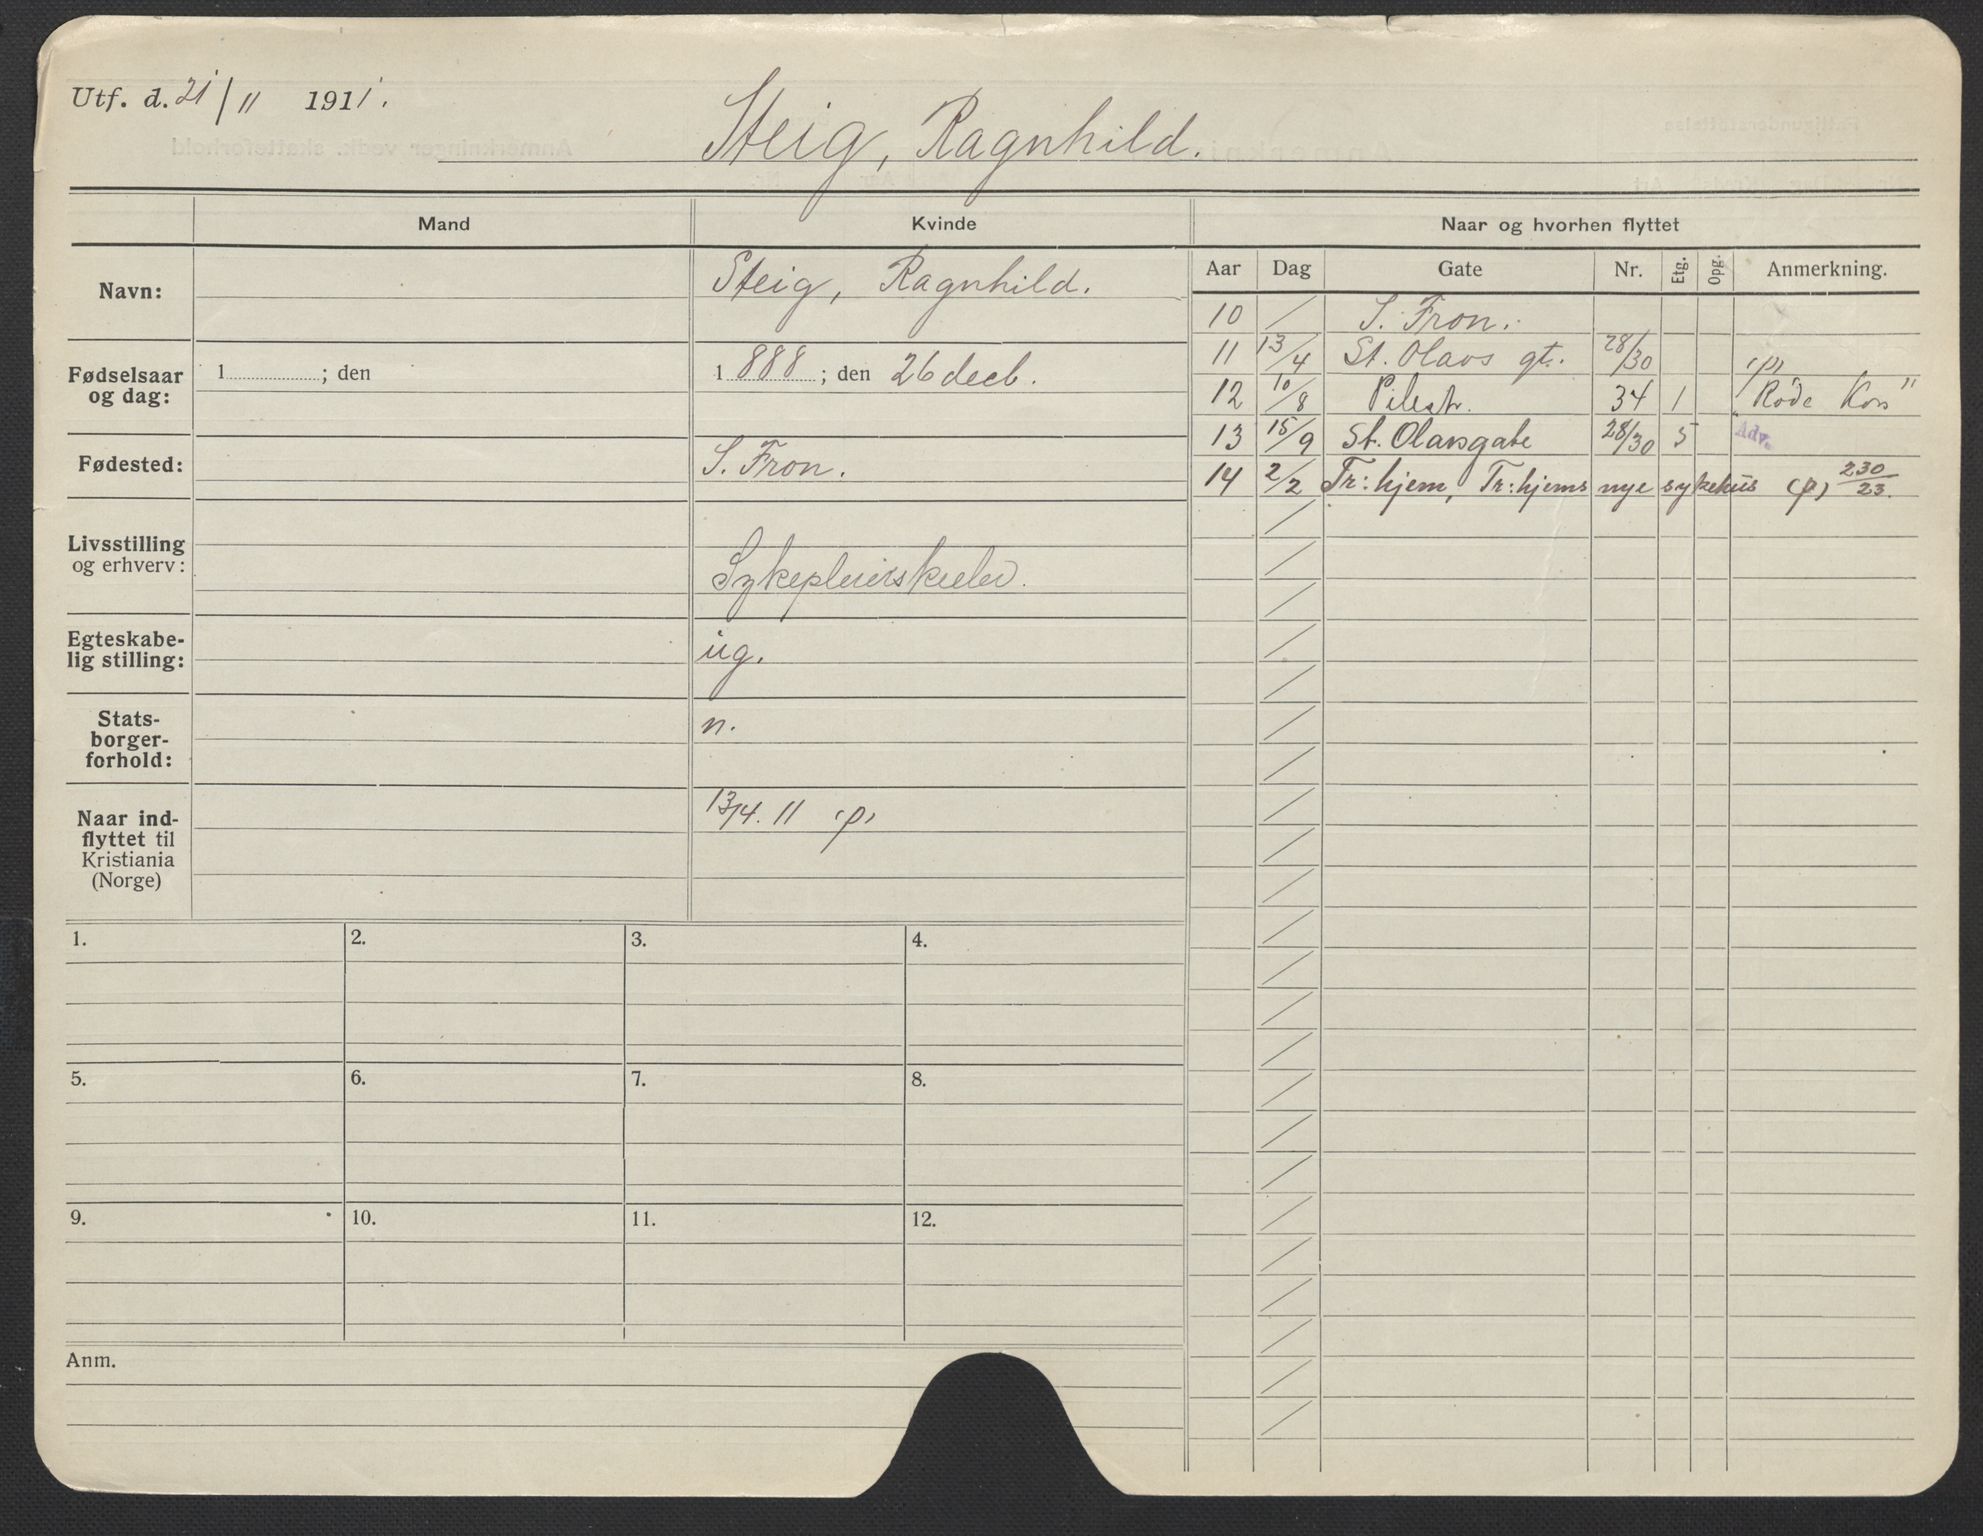 Utf. d. 21/11 1911.
Steig, Ragnhild.
Mand
Kvinde
Naar og hvorhen flyttet
Navn:
Steig, Ragnhild.
Fødselsaar og dag:
1 ; den
1 888 ; den 26 decb.
Fødested:
S. Fron.
Livsstilling og erhverv:
Sykepleierskeelev.
Egteskabe-
lig stilling:
ug.
Stats-
borger-
forhold:
n.
Naar ind-
flyttet til
Kristiania
(Norge)
13/4. 11 (p)
Aar Dag Gate Nr. Etg. Opg. Anmerkning.
10 / S. Fron.
11 13/4 St. Olavs gt. 28/30 (p)
12 10/8 Pilestr. 34 1 "Røde Kors"
13 15/9 St. Olavsgate 28/30 5 Adv.
14 2/2 Tr:hjem, Tr:hjems nye sykehus (p) 230/23.
1. 2. 3. 4.
5. 6. 7. 8.
9. 10. 11. 12.
Anm.